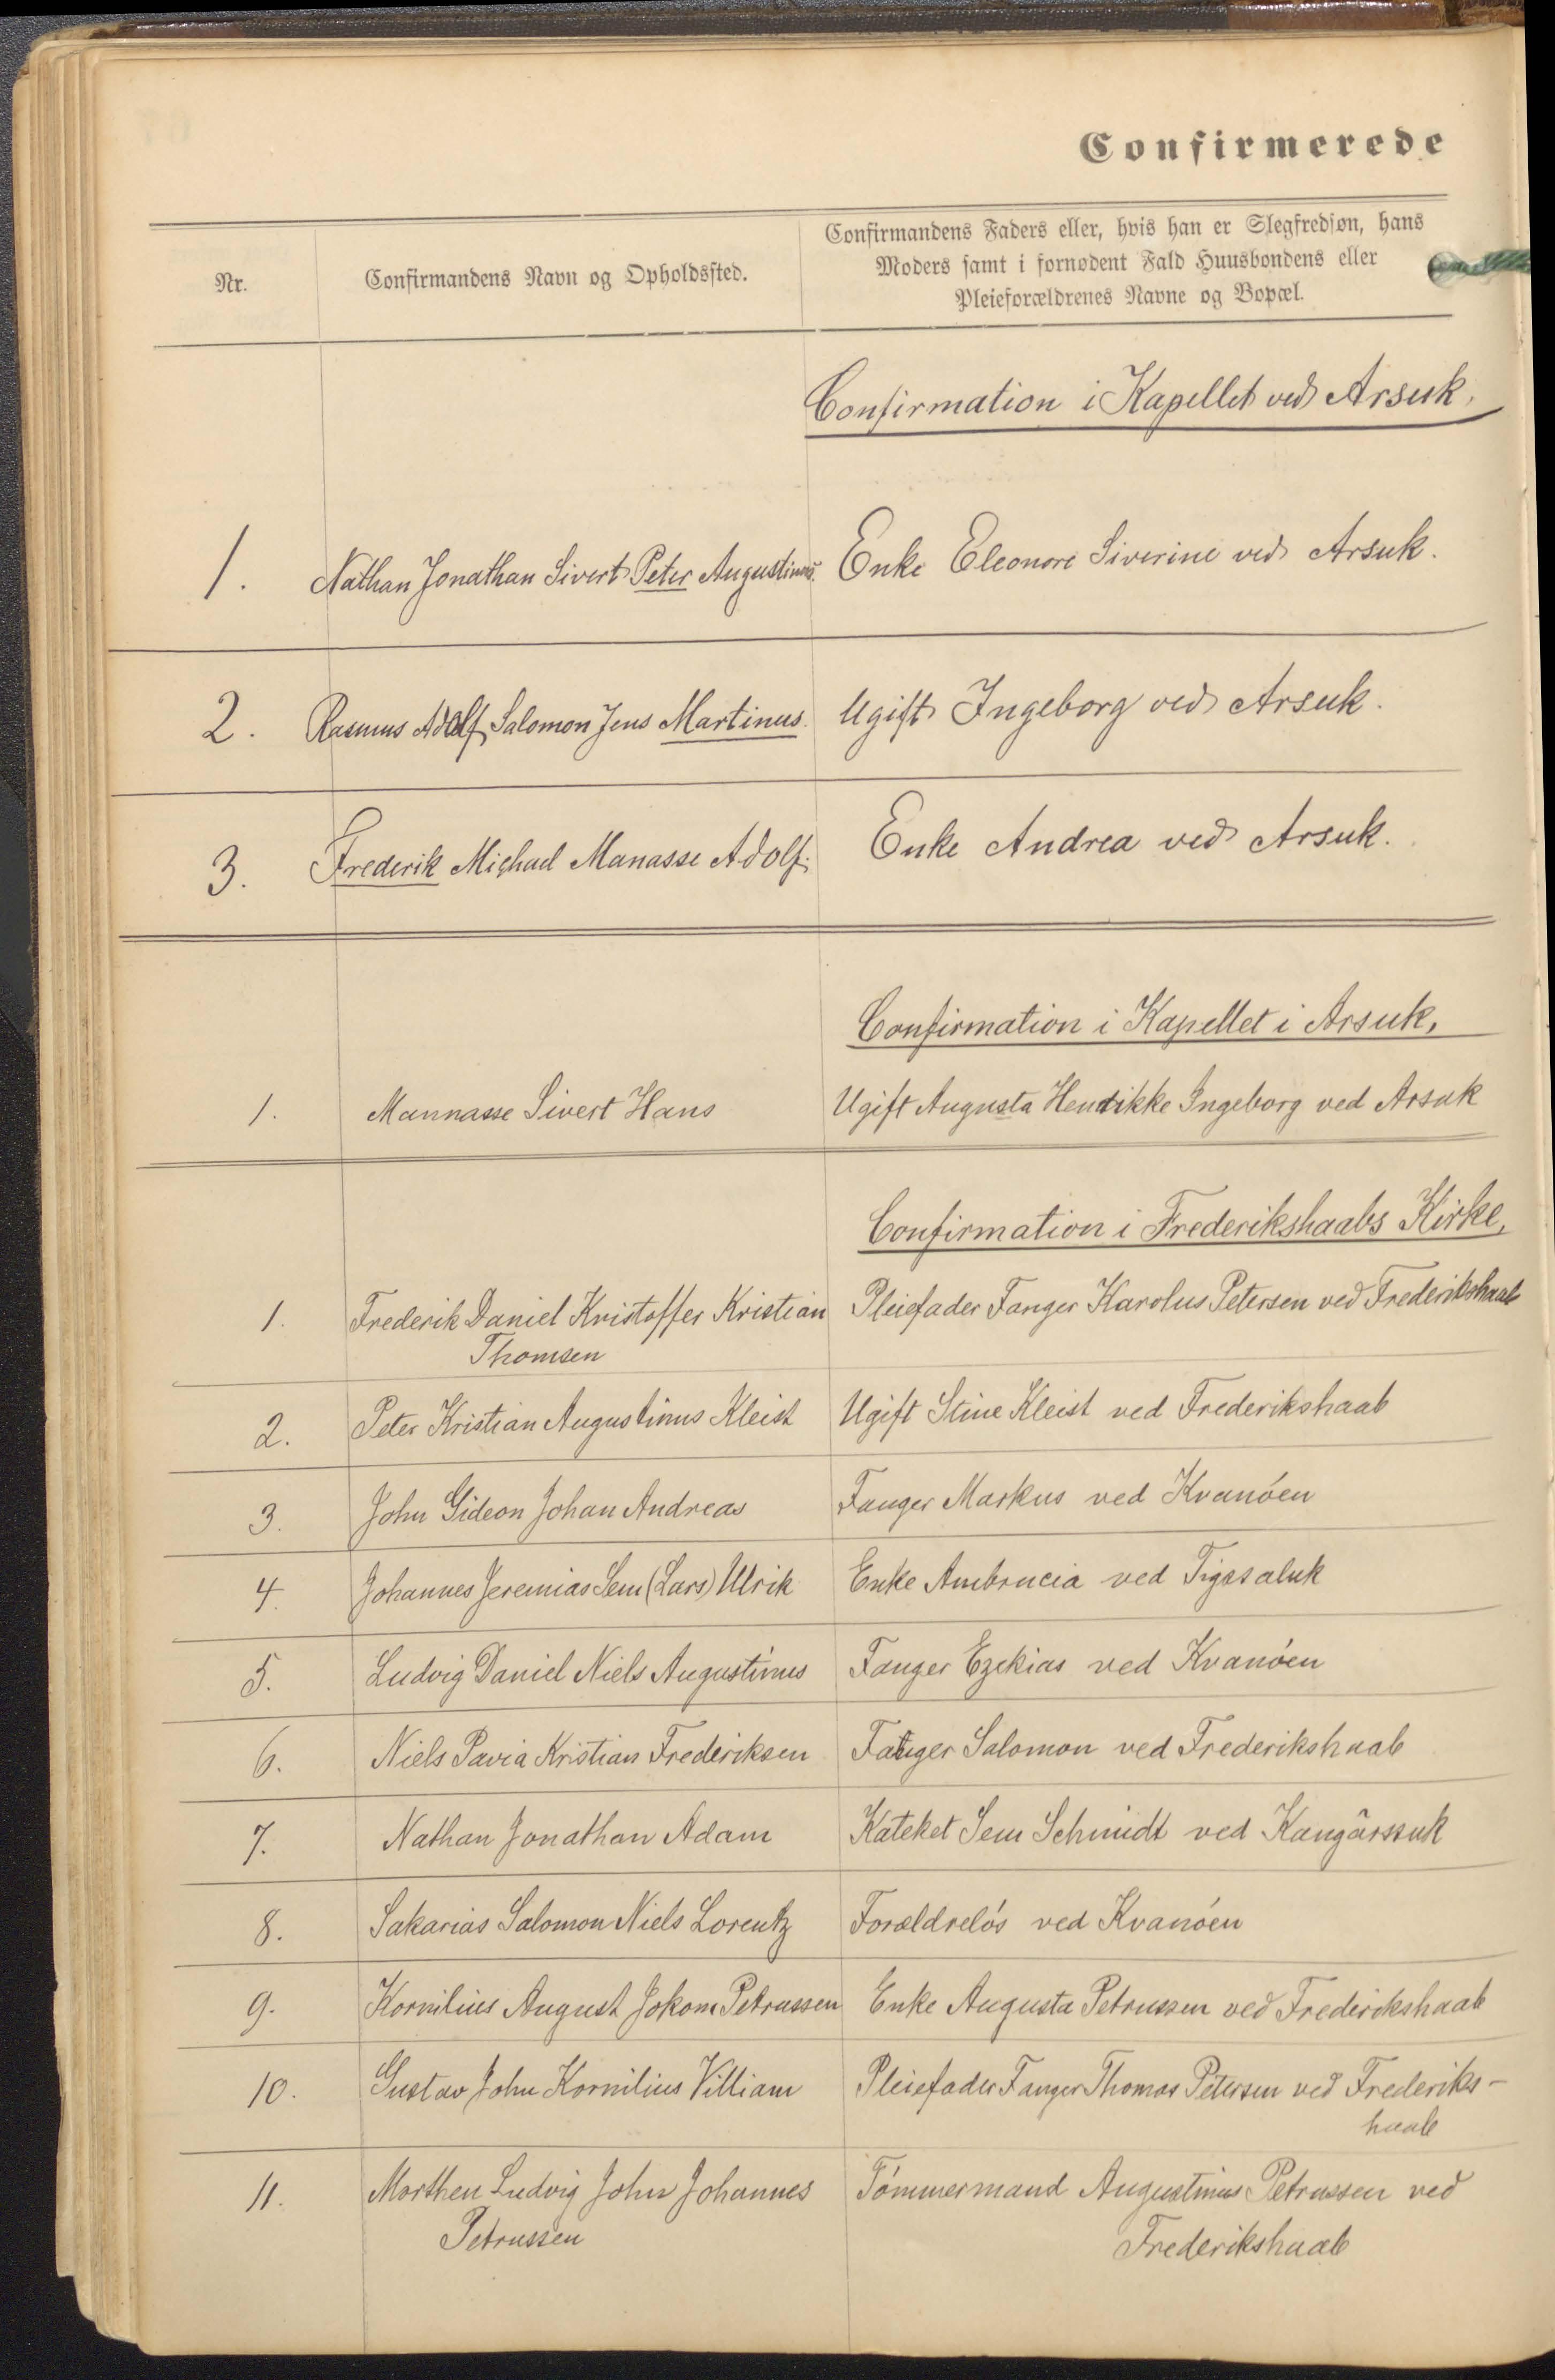 Confirmerede
Nr.
Confirmandens Navn og Opholdssted.
Confirmandens Faders eller, hvis han er Slegfredsøn, hans
Moders samt i fornødent Fald Huusbondens eller
Pleieforældrenes Navne og Bopæl.
Confirmation i Kapellet ved Arsuk.
1. Nathan Jonathan Sivert Peter Augustinus. Enke Eleonore Siverine ved Arsuk.
2. Rasmus Adolf Salomon Jens Martinus. Ugift Ingeborg ved Arsuk.
3. Frederik Michael Manasse Adolf. Enke Andrea ved Arsuk.
Confirmation i Kapellet i Arsuk,
1. Mannasse Sivert Hans Ugift Augusta Hendikke Ingeborg ved Arsuk
Confirmation i Frederikshaabs Kirke,
1. Frederik Daniel Kristoffer Kristian Pleiefader Fanger Karolus Petersen ved Frederikshaab
Thomsen
2. Peter Kristian Augustinus Kleist Ugift Stine Kleist ved Frederikshaab
3. John Gideon Johan Andreas Fanger Markus ved Kvanöen
4. Johannes Jeremias Sem (Lars) Ulrik Enke Ambrucia ved Tigssaluk
5. Ludvig Daniel Niels Augustinus Fanger Ezekias ved Kvanöen
6. Niels Pavia Kristian Frederiksen Fanger Salomon ved Frederikshaab
7. Nathan Jonathan Adam Kateket Sem Schmidt ved Kangârssuk
8. Sakarias Salomon Niels Lorentz Forældrelös ved Kvanöen
9. Kornilius August Jokom Petrussen Enke Augusta Petrussen ved Frederikshaab
10. Gustav John Kornilius Villiam Pleiefader Fanger Thomas Petersen ved Frederiks-
haab
11. Morthen Ludvig John Johannes Tömmermand Augustinus Petrussen ved
Petrussen Frederikshaab